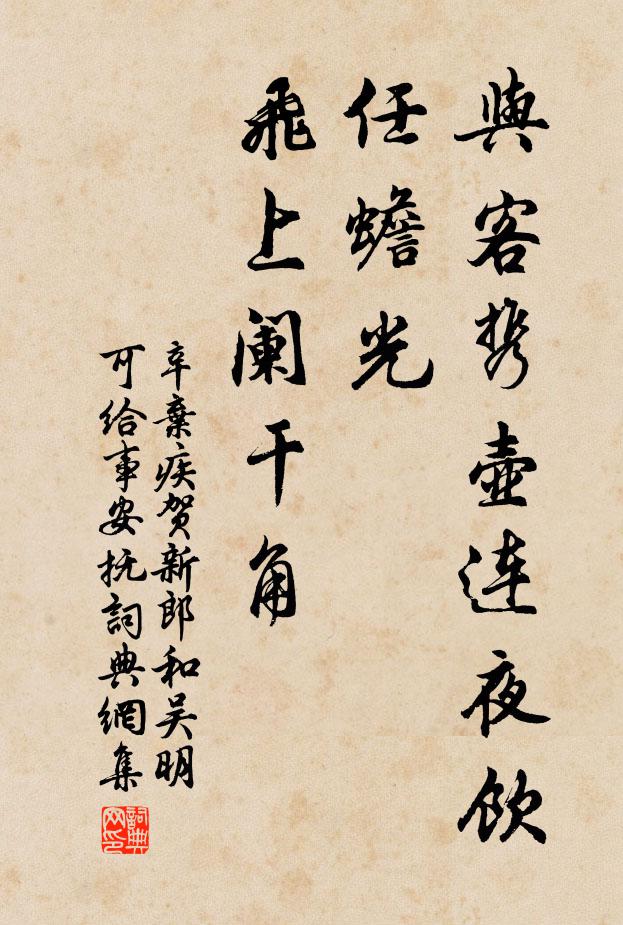 與客携壺连夜饮
任蟾光
飛上阑干角
辛棄疾贺新郎和吴明
可给事安抚詞典網集
詞典
网印